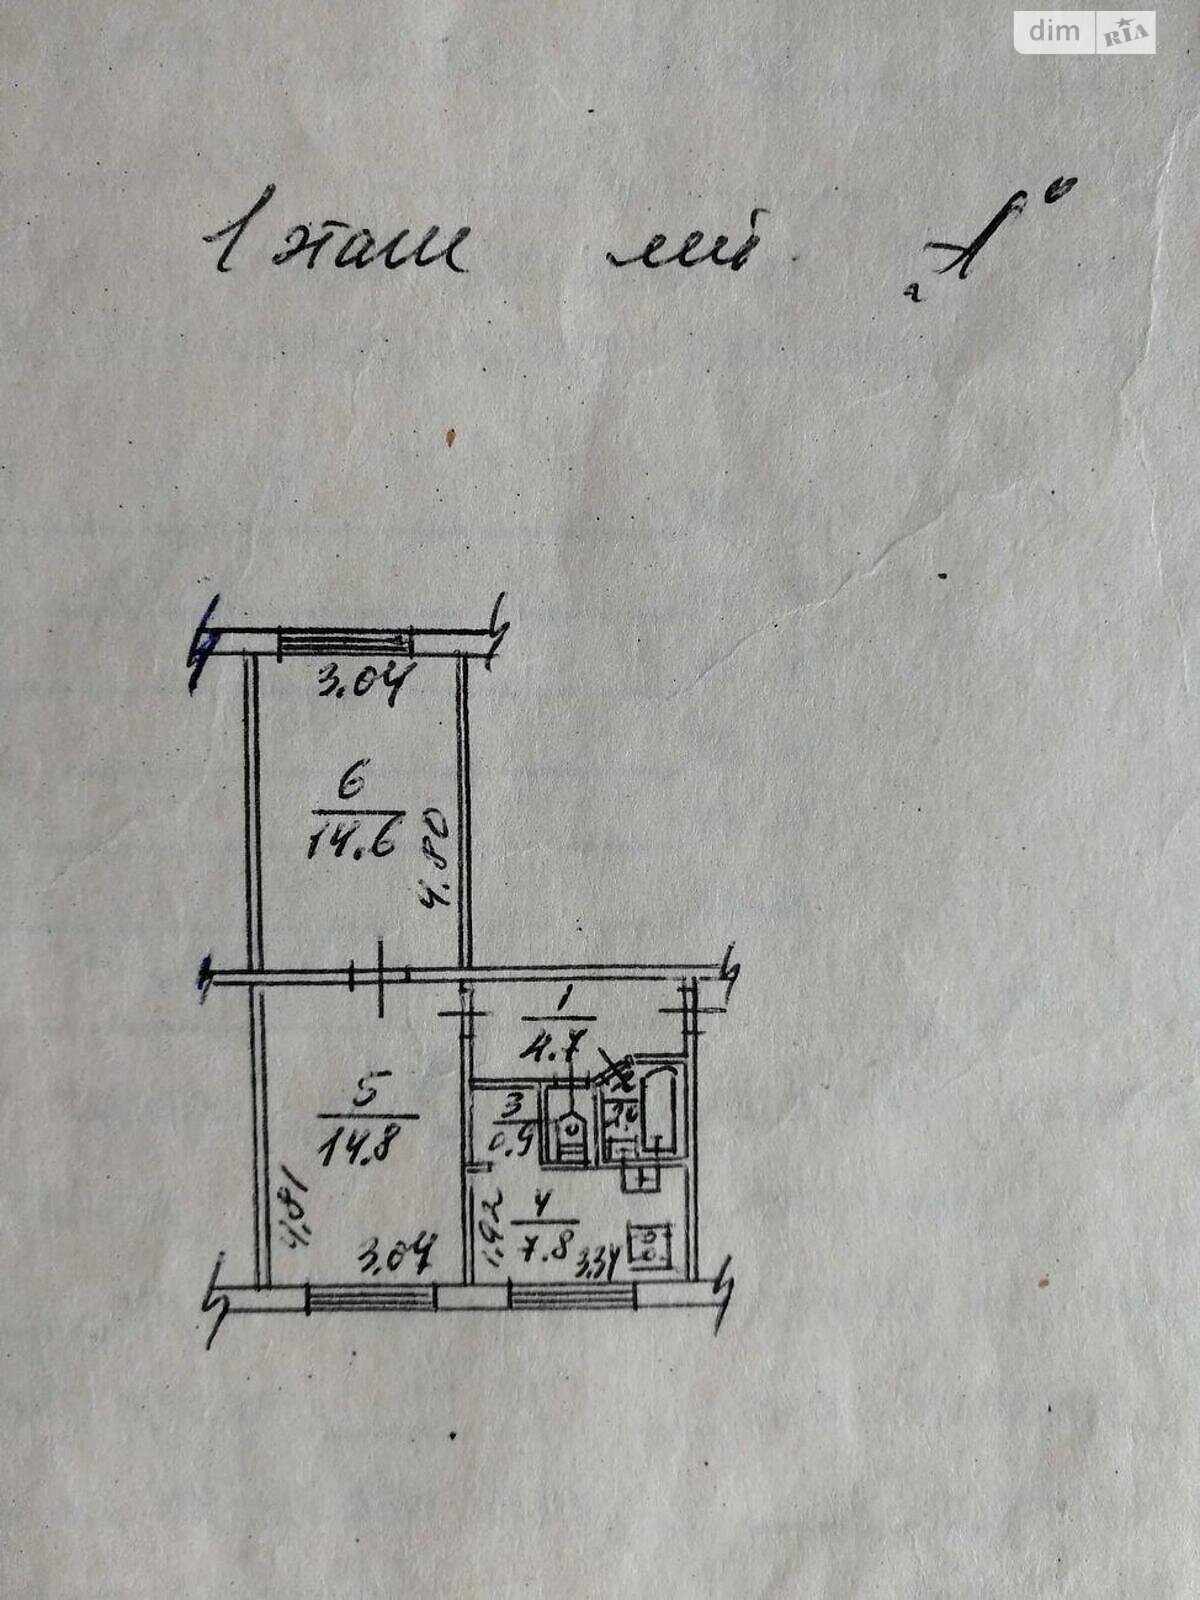 dim RIA
1 этаж лит. „А"
3.04
6
14.6
4.80
1
4.7
2
3
0.9
5
14.8
4.81
3.04
4
7.8
1.92
3.34